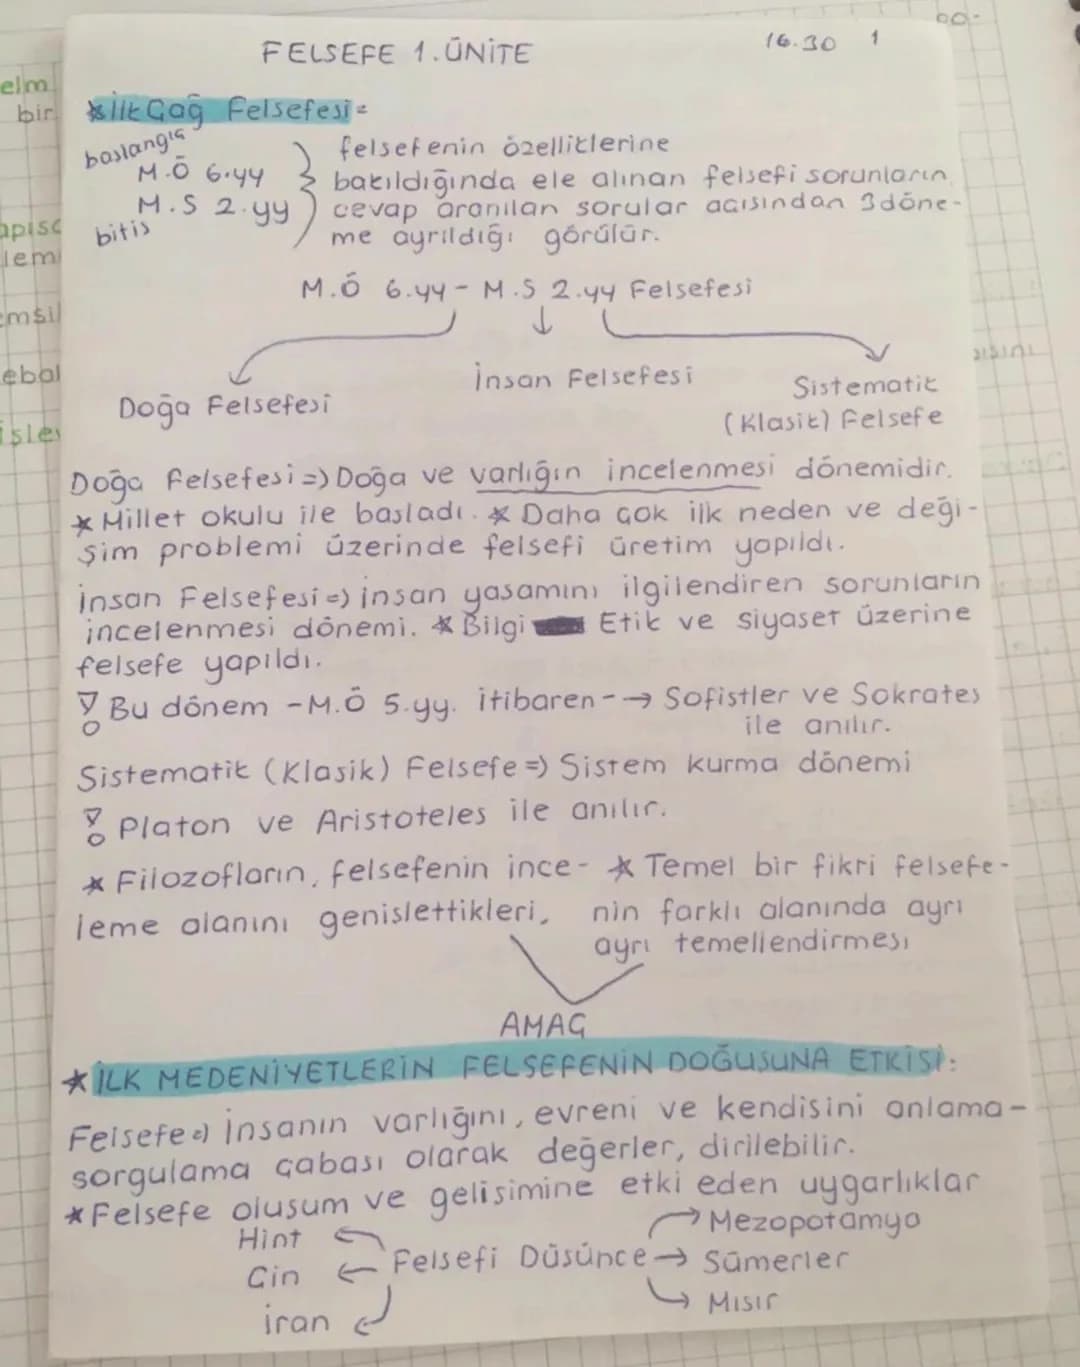 FELSEFE 1.ÜNİTE
16.30 1
elm
bir
*İlk Çağ Felsefesi=
başlangıç
M.Ö 6.yy
M.S 2.yy
bitiş
felsefenin özelliklerine
bakıldığında ele alınan felsefi sorunların
cevap aranılan sorular açısından 3 döne-
me ayrıldığı görülür.
M.Ö 6.yy - M.S 2.yy Felsefesi
Doğa Felsefesi
İnsan Felsefesi
Sistematik
(Klasik) Felsefe
Doğa Felsefesi => Doğa ve varlığın incelenmesi dönemidir.
* Millet okulu ile başladı. * Daha çok ilk neden ve deği-
şim problemi üzerinde felsefi üretim yapıldı.
İnsan Felsefesi => insan yaşamını ilgilendiren sorunların
incelenmesi dönemi. * Bilgi Etik ve siyaset üzerine
felsefe yapıldı.
! Bu dönem -M.Ö 5.yy. itibaren--> Sofistler ve Sokrates
ile anılır.
Sistematik (Klasik) Felsefe => Sistem kurma dönemi
! Platon ve Aristoteles ile anılır.
* Filozofların, felsefenin ince-
leme alanını genişlettikleri,
* Temel bir fikri felsefe-
nin farklı alanında ayrı
ayrı temellendirmesi
AMAÇ
* İLK MEDENİYETLERİN FELSEFENİN DOĞUŞUNA ETKİSİ:
Felsefe => İnsanın varlığını, evreni ve kendisini anlama-
sorgulama çabası olarak değerler, dirilebilir.
* Felsefe oluşum ve gelişimine etki eden uygarlıklar
Hint
Çin
İran
Felsefi Düşünce
Mezopotamya
Sümerler
Mısır